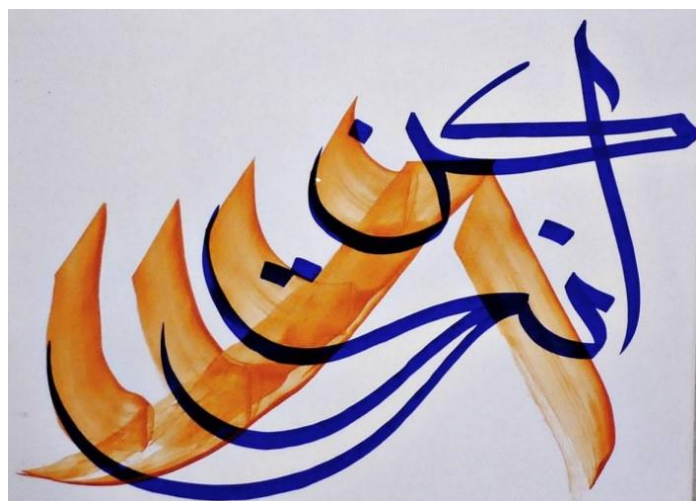 كن
انت